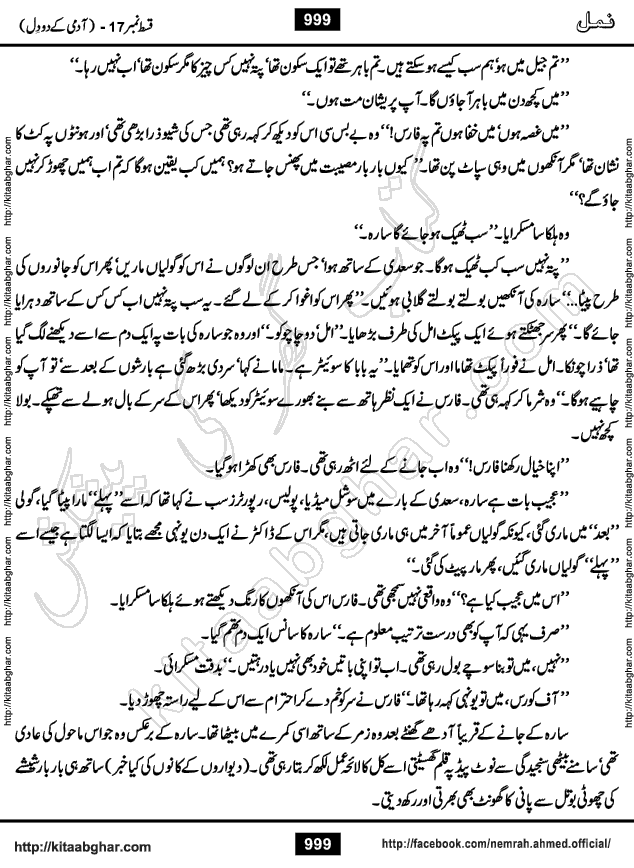 نمل
999
قسط نمبر 17 - (آدمی کے دو دِل)
’’تم جیل میں ہو‘ ہم سب کیسے ہو سکتے ہیں۔ تم باہر تھے تو ایک سکون تھا‘ پتہ نہیں کس چیز کا مگر سکون تھا‘ اب نہیں رہا۔‘‘
’’میں کچھ دن میں باہر آ جاؤں گا۔ آپ پریشان مت ہوں۔‘‘
’’میں غصہ ہوں‘ میں خفا ہوں تم پہ فارس!‘‘ وہ بے بسی سی اس کو دیکھ کر کہہ رہی تھی جس کی شیو ذرا بڑھی تھی‘ اور ہونٹوں پہ کٹ کا
نشان تھا‘ مگر آنکھوں میں وہی سپاٹ پن تھا۔ ’’کیوں بار بار مصیبت میں پھنس جاتے ہو؟ ہمیں کب یقین ہوگا کہ تم اب ہمیں چھوڑ کر نہیں
جاؤ گے؟‘‘
وہ ہلکا سا مسکرایا۔ ’’سب ٹھیک ہو جائے گا سارہ۔‘‘
’’پتہ نہیں سب کب ٹھیک ہوگا۔ جو سعدی کے ساتھ ہوا‘ جس طرح ان لوگوں نے اس کو گولیاں ماریں‘ پھر اس کو جانوروں کی
طرح پیٹا...‘‘ سارہ کی آنکھیں بولتے بولتے گلابی ہوئیں۔ ’’پھر اس کو اغوا کر کے لے گئے۔ یہ سب پتہ نہیں اب کس کس کے ساتھ دہرایا
جائے گا۔‘‘ پھر سر جھٹکتے ہوئے ایک پیکٹ امل کی طرف بڑھایا۔ ’’امل‘ دو چاچو کو۔‘‘ اور وہ جو سارہ کی بات پہ ایک دم سے اسے دیکھنے لگ گیا
تھا‘ ذرا چونکا۔ امل نے فوراً پیکٹ تھاما اور اس کو تھمایا۔ ’’یہ بابا کا سوئیٹر ہے۔ ماما نے کہا‘ سردی بڑھ گئی ہے بارشوں کے بعد سے‘ تو آپ کو
چاہیے ہوگا۔‘‘ وہ شرما کر کہہ رہی تھی۔ فارس نے ایک نظر ہاتھ سے بنے بھورے سوئیٹر کو دیکھا‘ پھر اس کے سر کے بال ہولے سے تھپکے۔ بولا
کچھ نہیں۔
’’اپنا خیال رکھنا فارس!‘‘ وہ اب جانے کے لئے اٹھ رہی تھی۔ فارس بھی کھڑا ہو گیا۔
’’عجیب بات ہے سارہ، سعدی کے بارے میں سوشل میڈیا، پولیس، رپورٹرز سب نے کہا تھا کہ اسے ’’پہلے‘‘ مارا پیٹا گیا، گولی
’’بعد‘‘ میں ماری گئی، کیونکہ گولیاں عموماً آخر میں ہی ماری جاتی ہیں، مگر اس کے ڈاکٹر نے ایک دن یونہی مجھے بتایا کہ ایسا لگتا ہے جیسے اسے
’’پہلے‘‘ گولیاں ماری گئیں، پھر مار پیٹ کی گئی۔‘‘
’’اس میں عجیب کیا ہے؟‘‘ وہ واقعی نہیں سمجھی تھی۔ فارس اس کی آنکھوں کا رنگ دیکھتے ہوئے ہلکا سا مسکرایا۔
’’صرف یہی کہ آپ کو بھی درست ترتیب معلوم ہے۔‘‘ سارہ کا سانس ایک دم تھم گیا۔
’’نہیں، میں تو بنا سوچے بول رہی تھی۔ اب تو اپنی باتیں خود بھی نہیں یاد رہتیں۔‘‘ بدقت مسکرائی۔
’’آف کورس، میں تو یونہی کہہ رہا تھا۔‘‘ فارس نے سر کو خم دے کر احترام سے اس کے لیے راستہ چھوڑ دیا۔
سارہ کے جانے کے قریباً آدھے گھنٹے بعد وہ زمر کے ساتھ اسی کمرے میں بیٹھا تھا۔ سارہ کے برعکس وہ جو اس ماحول کی عادی
تھی‘ سامنے بیٹھی سنجیدگی سے نوٹ پیڈ پہ قلم گھسیٹتی اسے کل کا لائحہ عمل لکھ کر بتا رہی تھی۔ (دیواروں کے کانوں کی کیا خبر) ساتھ ہی بار بار شیشے
کی چھوٹی بوتل سے پانی کا گھونٹ بھی بھرتی اور رکھ دیتی۔
کتاب گھر کی پیشکش
kitaabghar.com
http://kitaabghar.com http://kitaabghar.com http://kitaabghar.com http://kitaabghar.com http://kitaabghar.com http://kitaabghar.com
http://kitaabghar.com http://kitaabghar.com http://kitaabghar.com http://kitaabghar.com http://kitaabghar.com http://kitaabghar.com
http://kitaabghar.com
999
http://facebook.com/nemrah.ahmed.official/